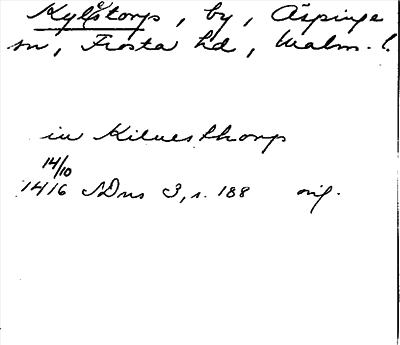 Kylstorp, by, Äspinge
sn, Frosta hd, Malm. l.
in Kilnesthorp
14/10
1416 SDns 3, s. 188 orig.